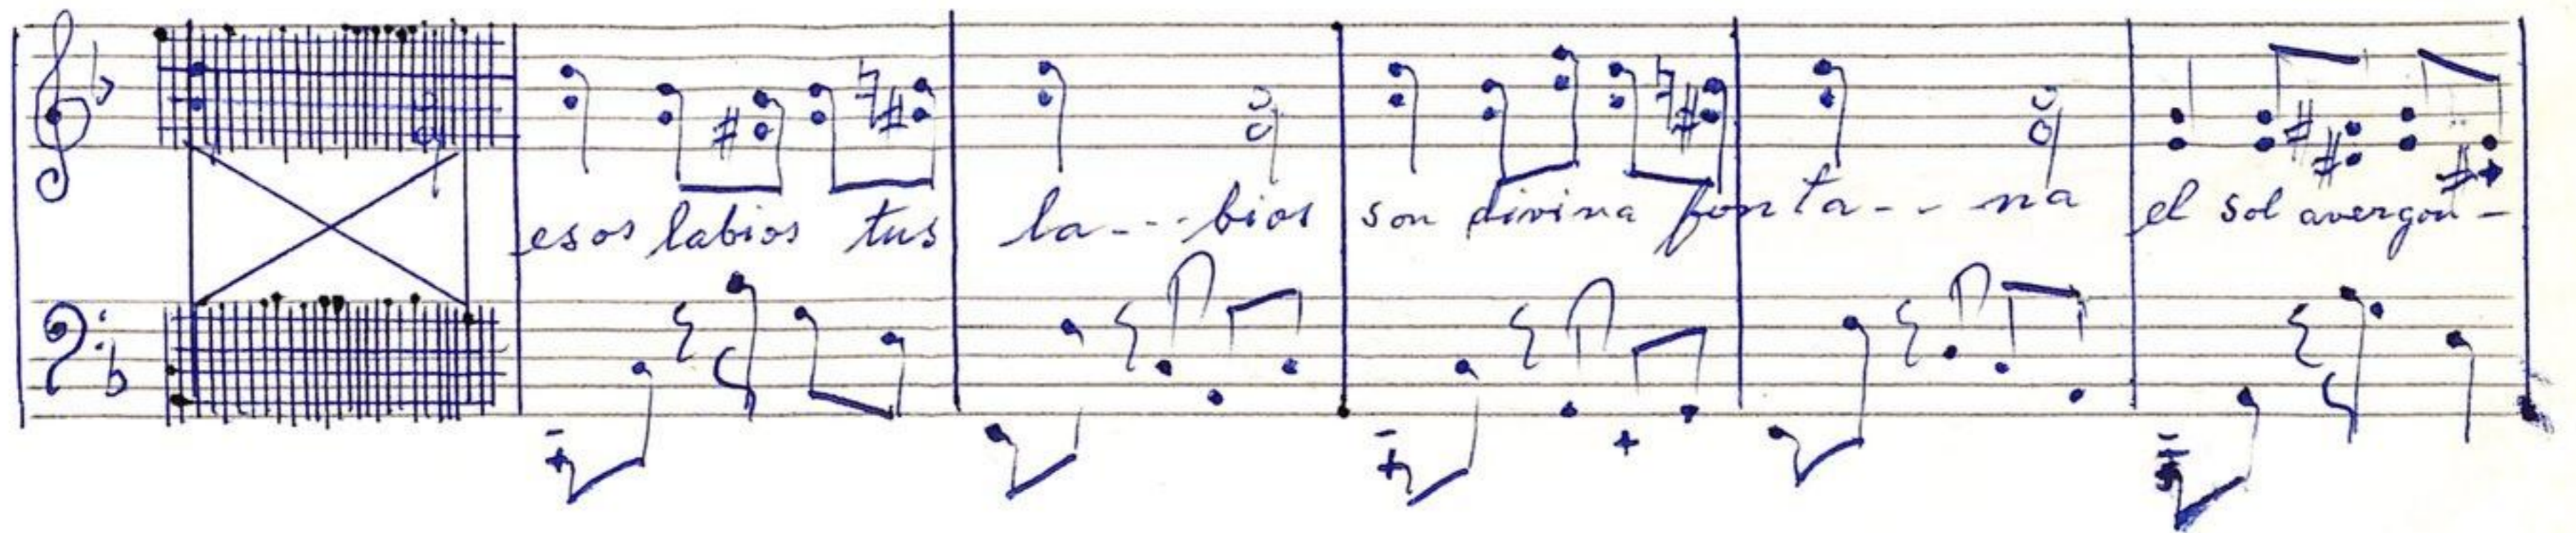 esos labios tus la---bios son divina fonta-- na el sol avergon-